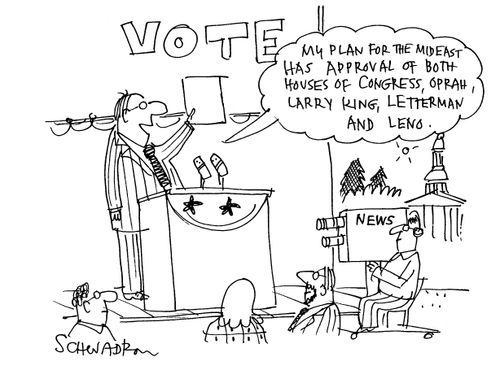 VOTE
MY PLAN FOR THE MIDEAST
HAS APPROVAL OF BOTH
HOUSES OF CONGRESS, OPRAH,
LARRY KING, LETTERMAN
AND LENO.
NEWS
SCHWADRON